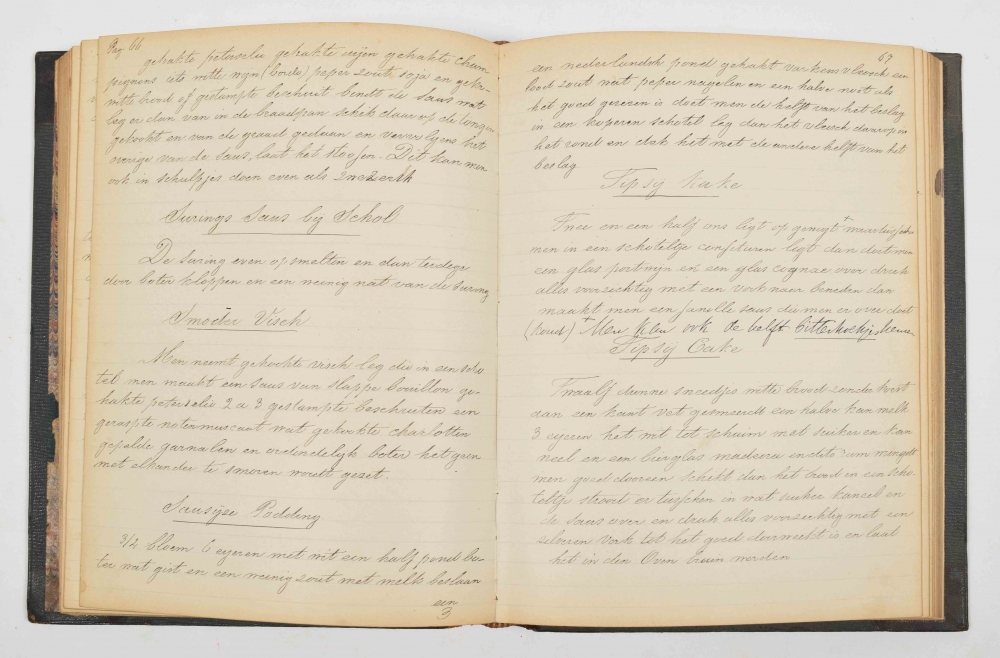 Pag 66
gehakte peterselie gehakte uijen gehakte cham
pignons iets witte wijn (bordo) peper zout soja en gekr.
witte brood of gestampte beschuit bindt de saus wat
leg er dan van in de braadpan schik daar op de tongen
gekookt en van de graad gedaan en vervolgens het
overige van de saus, laat het stoofen. Dit kan men
ook in schulpjes doen even als
Surings Saus bij Schol
De Suring even op smelten en dan terdege
door boter kloppen en een weinig nat van de Suring
Smoder Visch
Men neemt gekookte visch leg die in een scho
tel men maakt een saus van slappe bouillon ge-
hakte peterselie 2 a 3 gestampte beschuiten een
geraspte notenmuscaat wat gehakte charlotten
gepelde garnalen en ordendelijk boter het geen
met elkander te smoren wordt gezet.
Sausijse Podding
3/2 bloem 6 eijeren met wit een half pond bo-
ter wat gist en een weinig zout met melk beslaan
een
3
67
een nederlandsch pond gehakt varkensvleesch een
lood zout wat peper nagelen en een halve noot als
het goed gerezen is doet men de helft van het beslag
in een koperen schotel leg dan het vleesch daarop in
het rond en dek het met de andere helft van het
beslag
Tipsy Kake
Twee en een half ons ligt of
men in een schoteltje confituren ligt dan doet men
een glas portwijn en een glas cognac over druk
alles voorzichtig met een vork naar beneden dan
maakt men een vanille saus die men er over doet
(koud) + Men kan ook de helft bitterkoekjes nemen
Tipsy Cake
Twaalf dunne sneedjes witte brood zonder korst
aan een kant vet gesmeerdt een halve kan melk
3 eijeren het wit tot schuim met suiker en kan
neel en een bierglas madeira en dito rum mengelt
men goed dooreen schikt dan het brood in een scho
teltje strooit er tusschen in wat suiker kaneel en
de saus over en druk alles voorzichtig met een
zilveren Vork tot het goed doorweekt is en laat
het in den Oven bruin worden